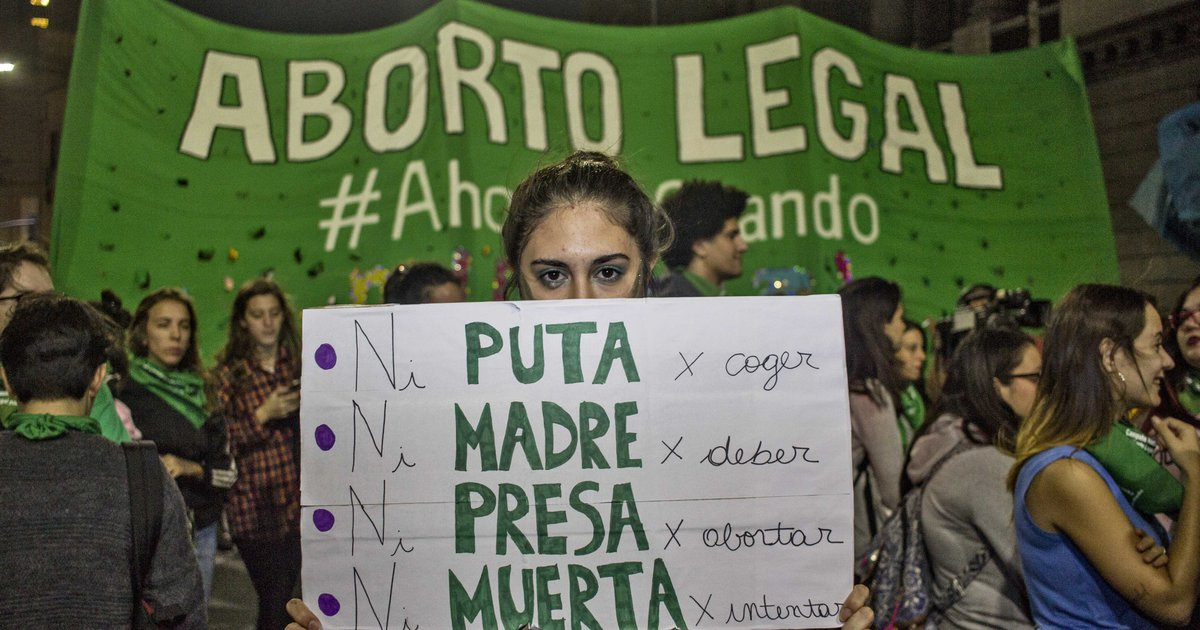 ABORTO LEGAL
Ni PUTA x coger
Ni MADRE x deber
Ni PRESA x abortar
Ni MUERTA x intentar